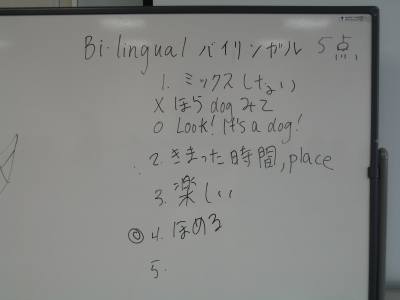 Bi-lingual バイリンガル 5点
1. ミックスしない
X ほら dog みて
O Look! It's a dog!
2. きまった時間, place
3. 楽しい
◎ 4. ほめる
5.